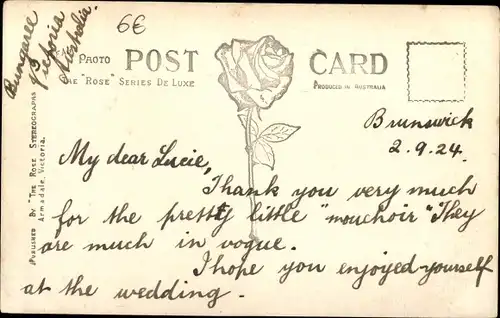 6€
Bungaree
Victoria
Australia.
PHOTO POST CARD
THE "ROSE" SERIES DE LUXE
PRODUCED IN AUSTRALIA
PUBLISHED BY "THE ROSE STEREOGRAPHS
Armadale, Victoria.
Brunswick
2.9.24.
My dear Lucie,
Thank you very much
for the pretty little "mouchoir" They
are much in vogue.
I hope you enjoyed yourself
at the wedding.